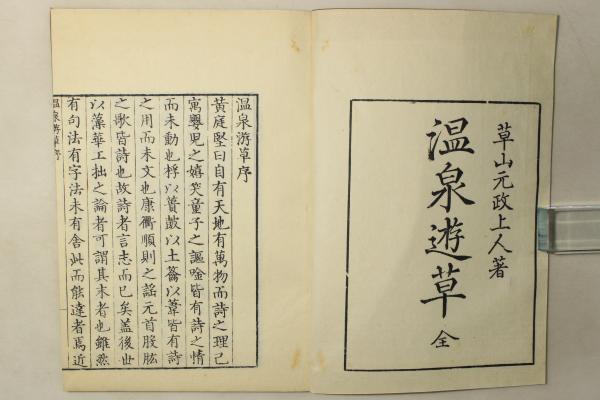 草山元政上人著
温泉遊草 全
温泉游草序
黄庭堅曰自有天地有萬物而詩之理已
寓嬰児之嬉笑童子之謳唫皆有詩之情
而未動也桴以蕢鼓以土籥以葦皆有詩
之用而未文也康衢順則之謡元首股肱
之歌皆詩也故詩者言志而已矣盖後世
以藻華工拙之論者可謂其末者也雖然
有句法有字法未有舎此而能達者焉近
温泉游草序